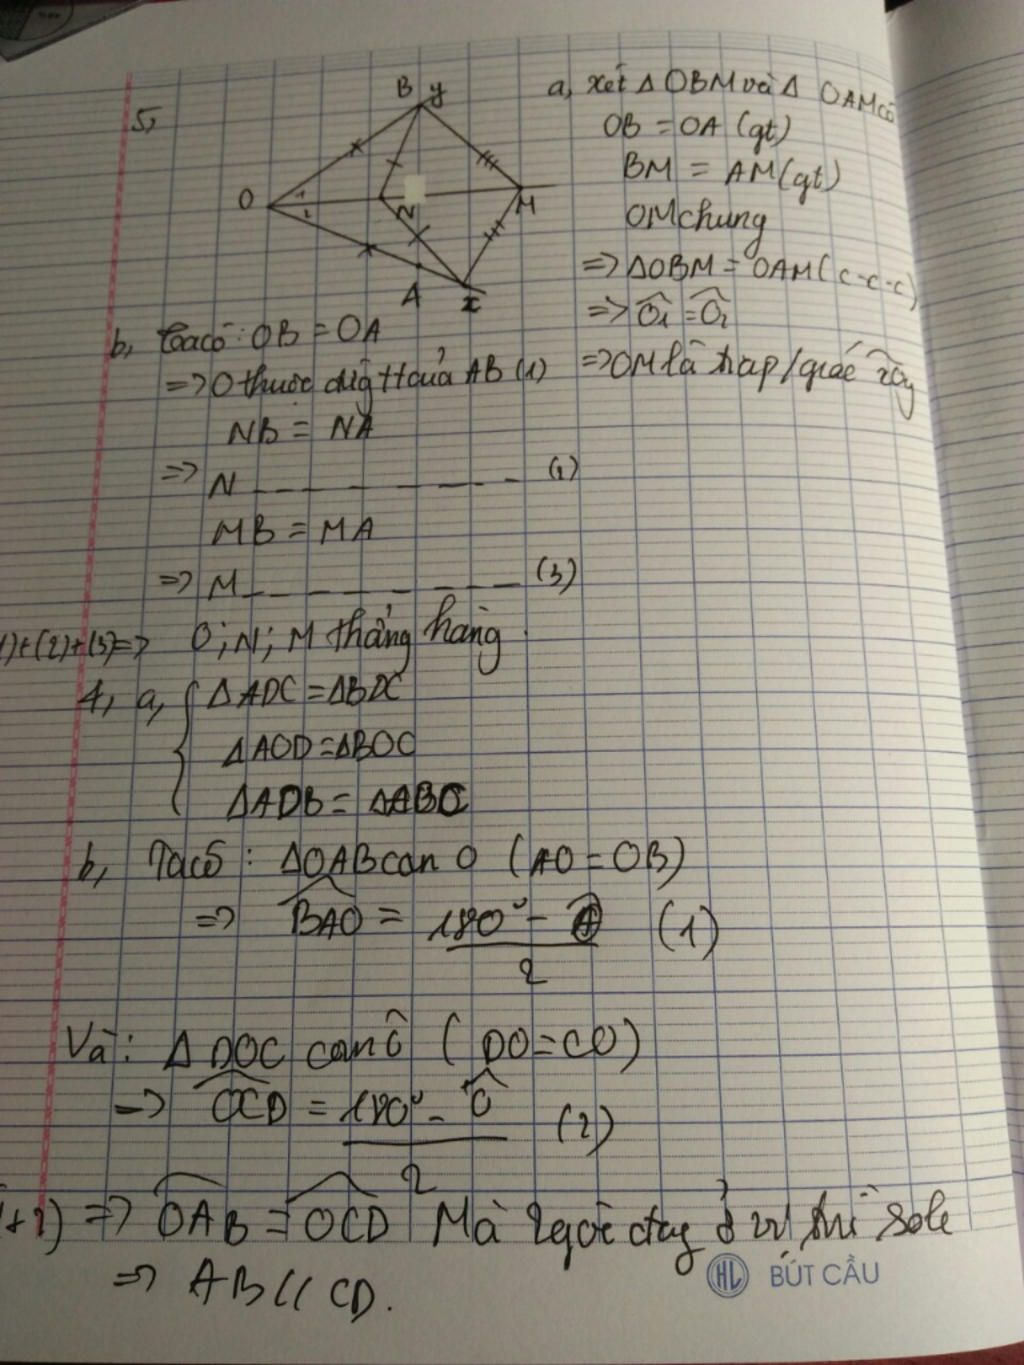 5,
B y
O
1
2
N
M
A x
a, xét Δ OBM và Δ OAM có
OB = OA (gt)
BM = AM (gt)
OM chung
=> ΔOBM = OAM (c-c-c)
=> Ô1 = Ô2
=> OM là
b, Ta có: OB = OA
=> O thuộc của AB (1)
NB = NA
=> N _ _ _ _ _ _ _ (2)
MB = MA
=> M _ _ _ _ _ _ _ (3)
1)+(2)+(3)=> O; N; M thẳng hàng
4, a, { ΔADC = ΔBDC
ΔAOD = ΔBOC
ΔADB = ΔABC
b, Ta có: ΔOAB can O (AO = OB)
=> BAO = 180° - / 2 (1)
Và: Δ DOC can ô (DO = CO)
=> OCD = 180° - Ô / 2 (2)
1+2) => OAB = OCD Mà ở vị trí sole
=> AB // CD.
HL BÚT CẦU